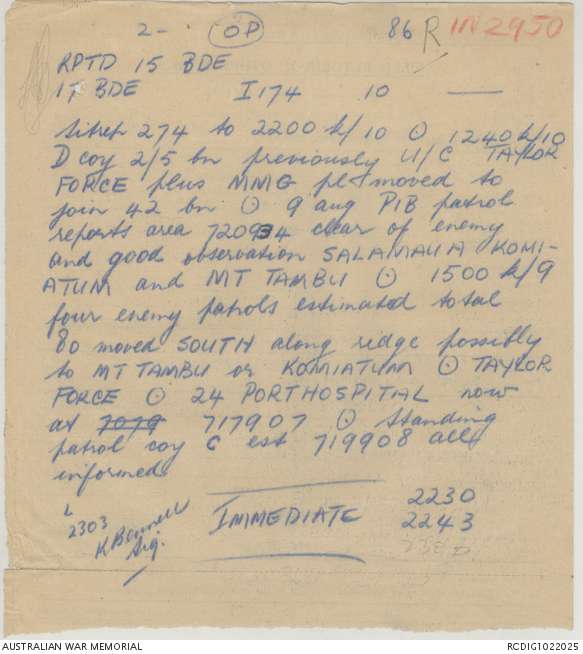 2- OP 86 R IN 2950
RPTD 15 BDE
17 BDE I174 10 —
Sitrep 274 to 2200 k/10 ⊙ 1240 k/10
D coy 2/5 bn previously U/C TAYLOR
FORCE plus MMG pl moved to
join 42 bn ⊙ 9 aug PIB patrol
reports area 720934 clear of enemy
and good observation SALAMAUA KOMI-
ATUM and MT TAMBU ⊙ 1500 k/9
four enemy patrols estimated total
80 moved SOUTH along ridge possibly
to MT TAMBU or KOMIATUM ⊙ TAYLOR
FORCE ⊙ 24 PORTHOSPITAL now
at 7079 717907 ⊙ Standing
patrol coy C est 719908 all
informed
2303
Sig.
IMMEDIATE
2230
2243
AUSTRALIAN WAR MEMORIAL RCDIG1022025